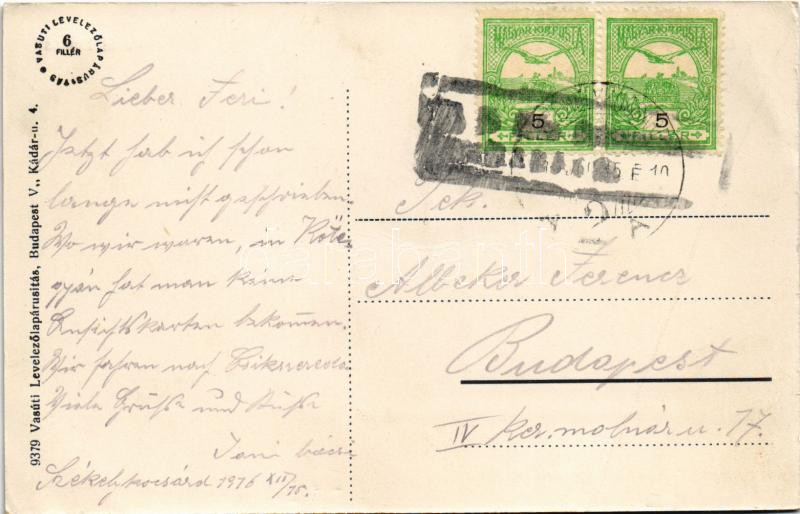 VASUTI LEVELEZŐLAPÁRUSITÁS
6
FILLÉR
9379 Vasúti Levelezőlapárusitás, Budapest V., Kádár-u. 4.
Lieber Feri!
Jetzt hab ich schon
lange nicht geschrieben.
Wo wir waren, in Köte-
gyán hat man keine
Ansichtskarten bekommen.
Wir fahren nach Csikszereda
Viele Grüße und Küße
Jani bácsi
Székelykocsárd 1916 XII/15.
MAGYAR KIR. POSTA
5
FILLÉR
MAGYAR KIR. POSTA
5
FILLÉR
Albeker Ferencz
Budapest
IV ker. molnár u. 17.
darabanth